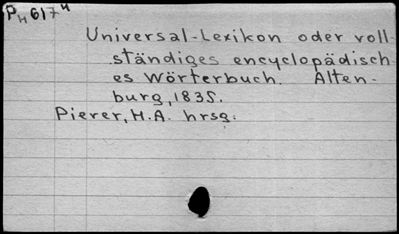 PH 617 4
Universal-Lexikon oder voll-
ständiges encyclopädisch
es Wörterbuch. Alten-
burg, 1835.
Pierer, H.A. hrsg.